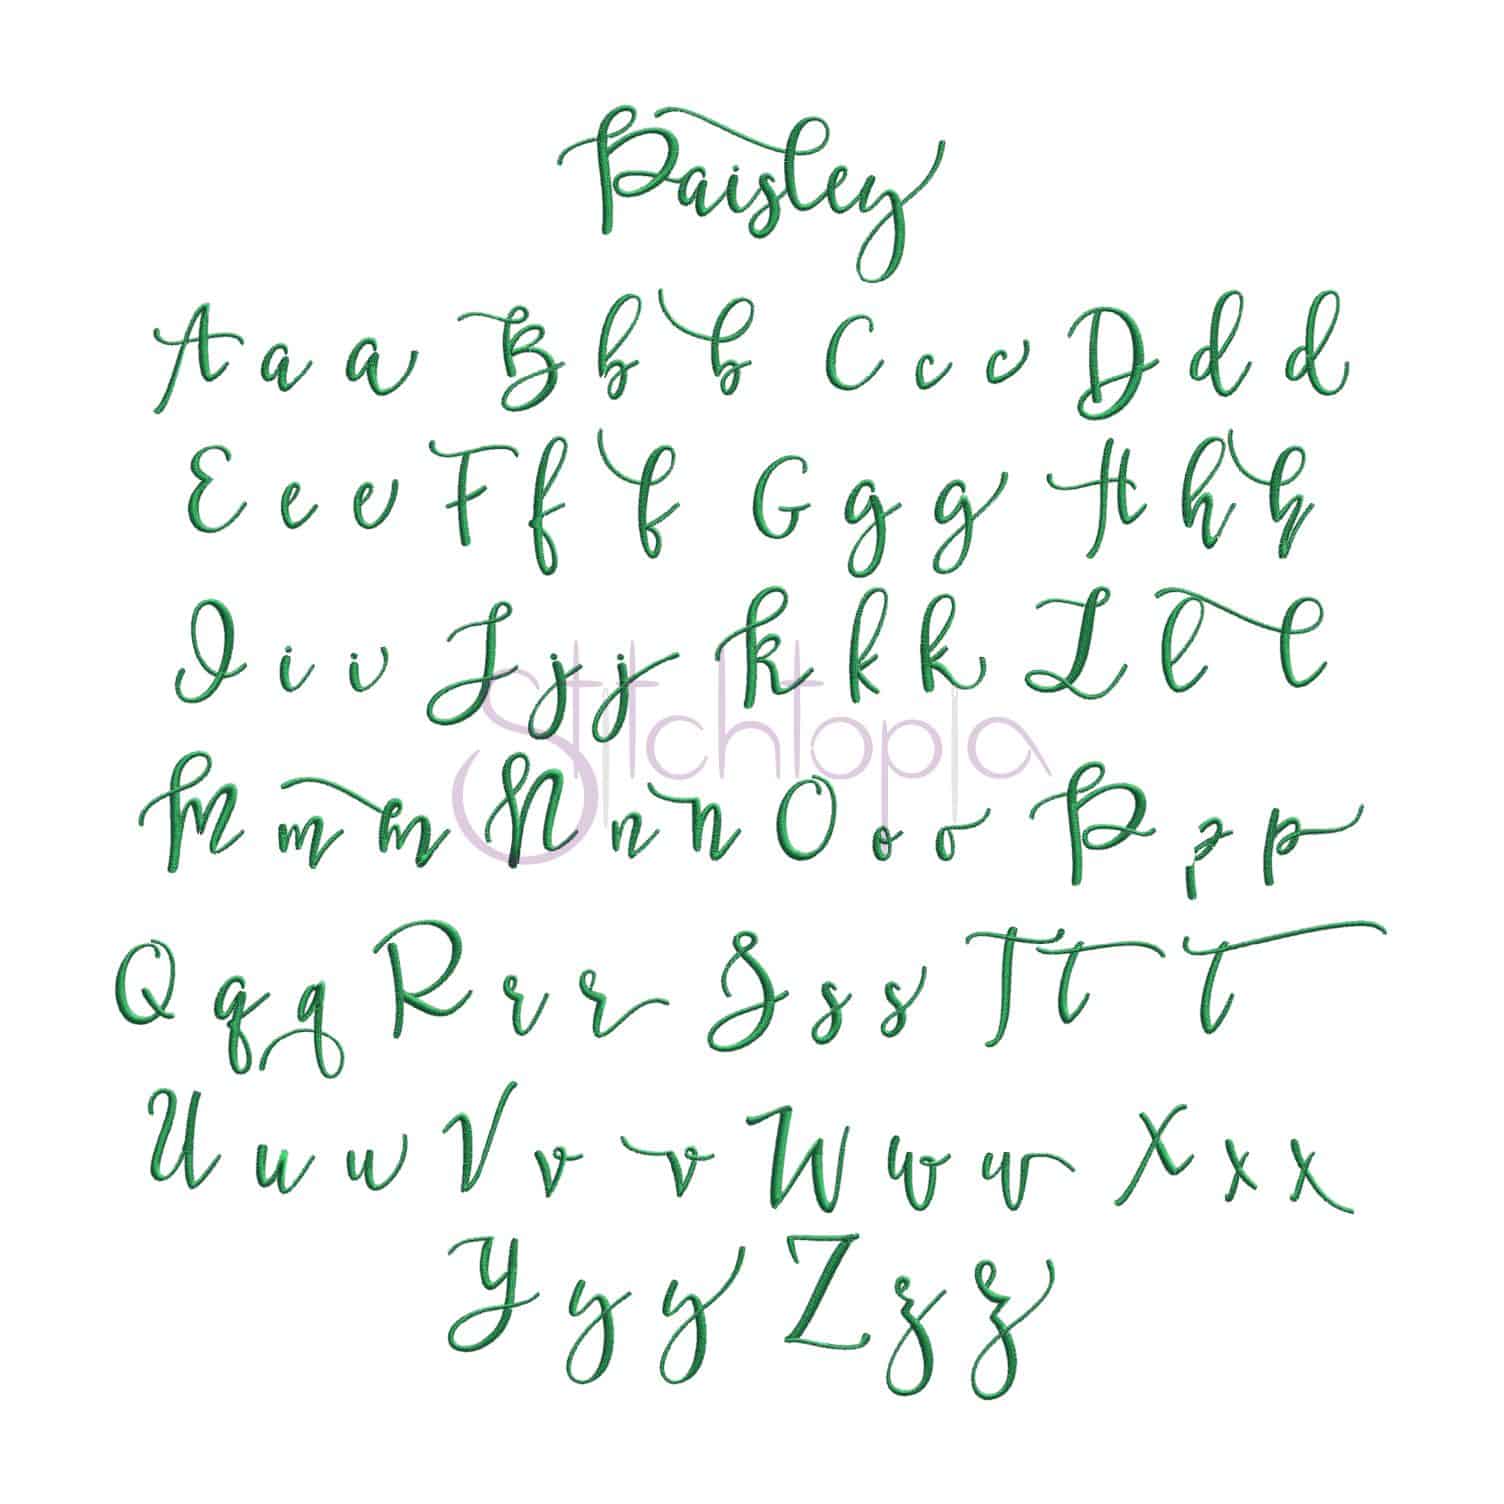 Paisley
A a a B b b C c c D d d
E e e F f f G g g H h h
I i i J j j K k k L l l
Stitchtopia
M m m N n n O o o P p p
Q q q R r r S s s T t t
U u u V v v W w w X x x
Y y y Z z z